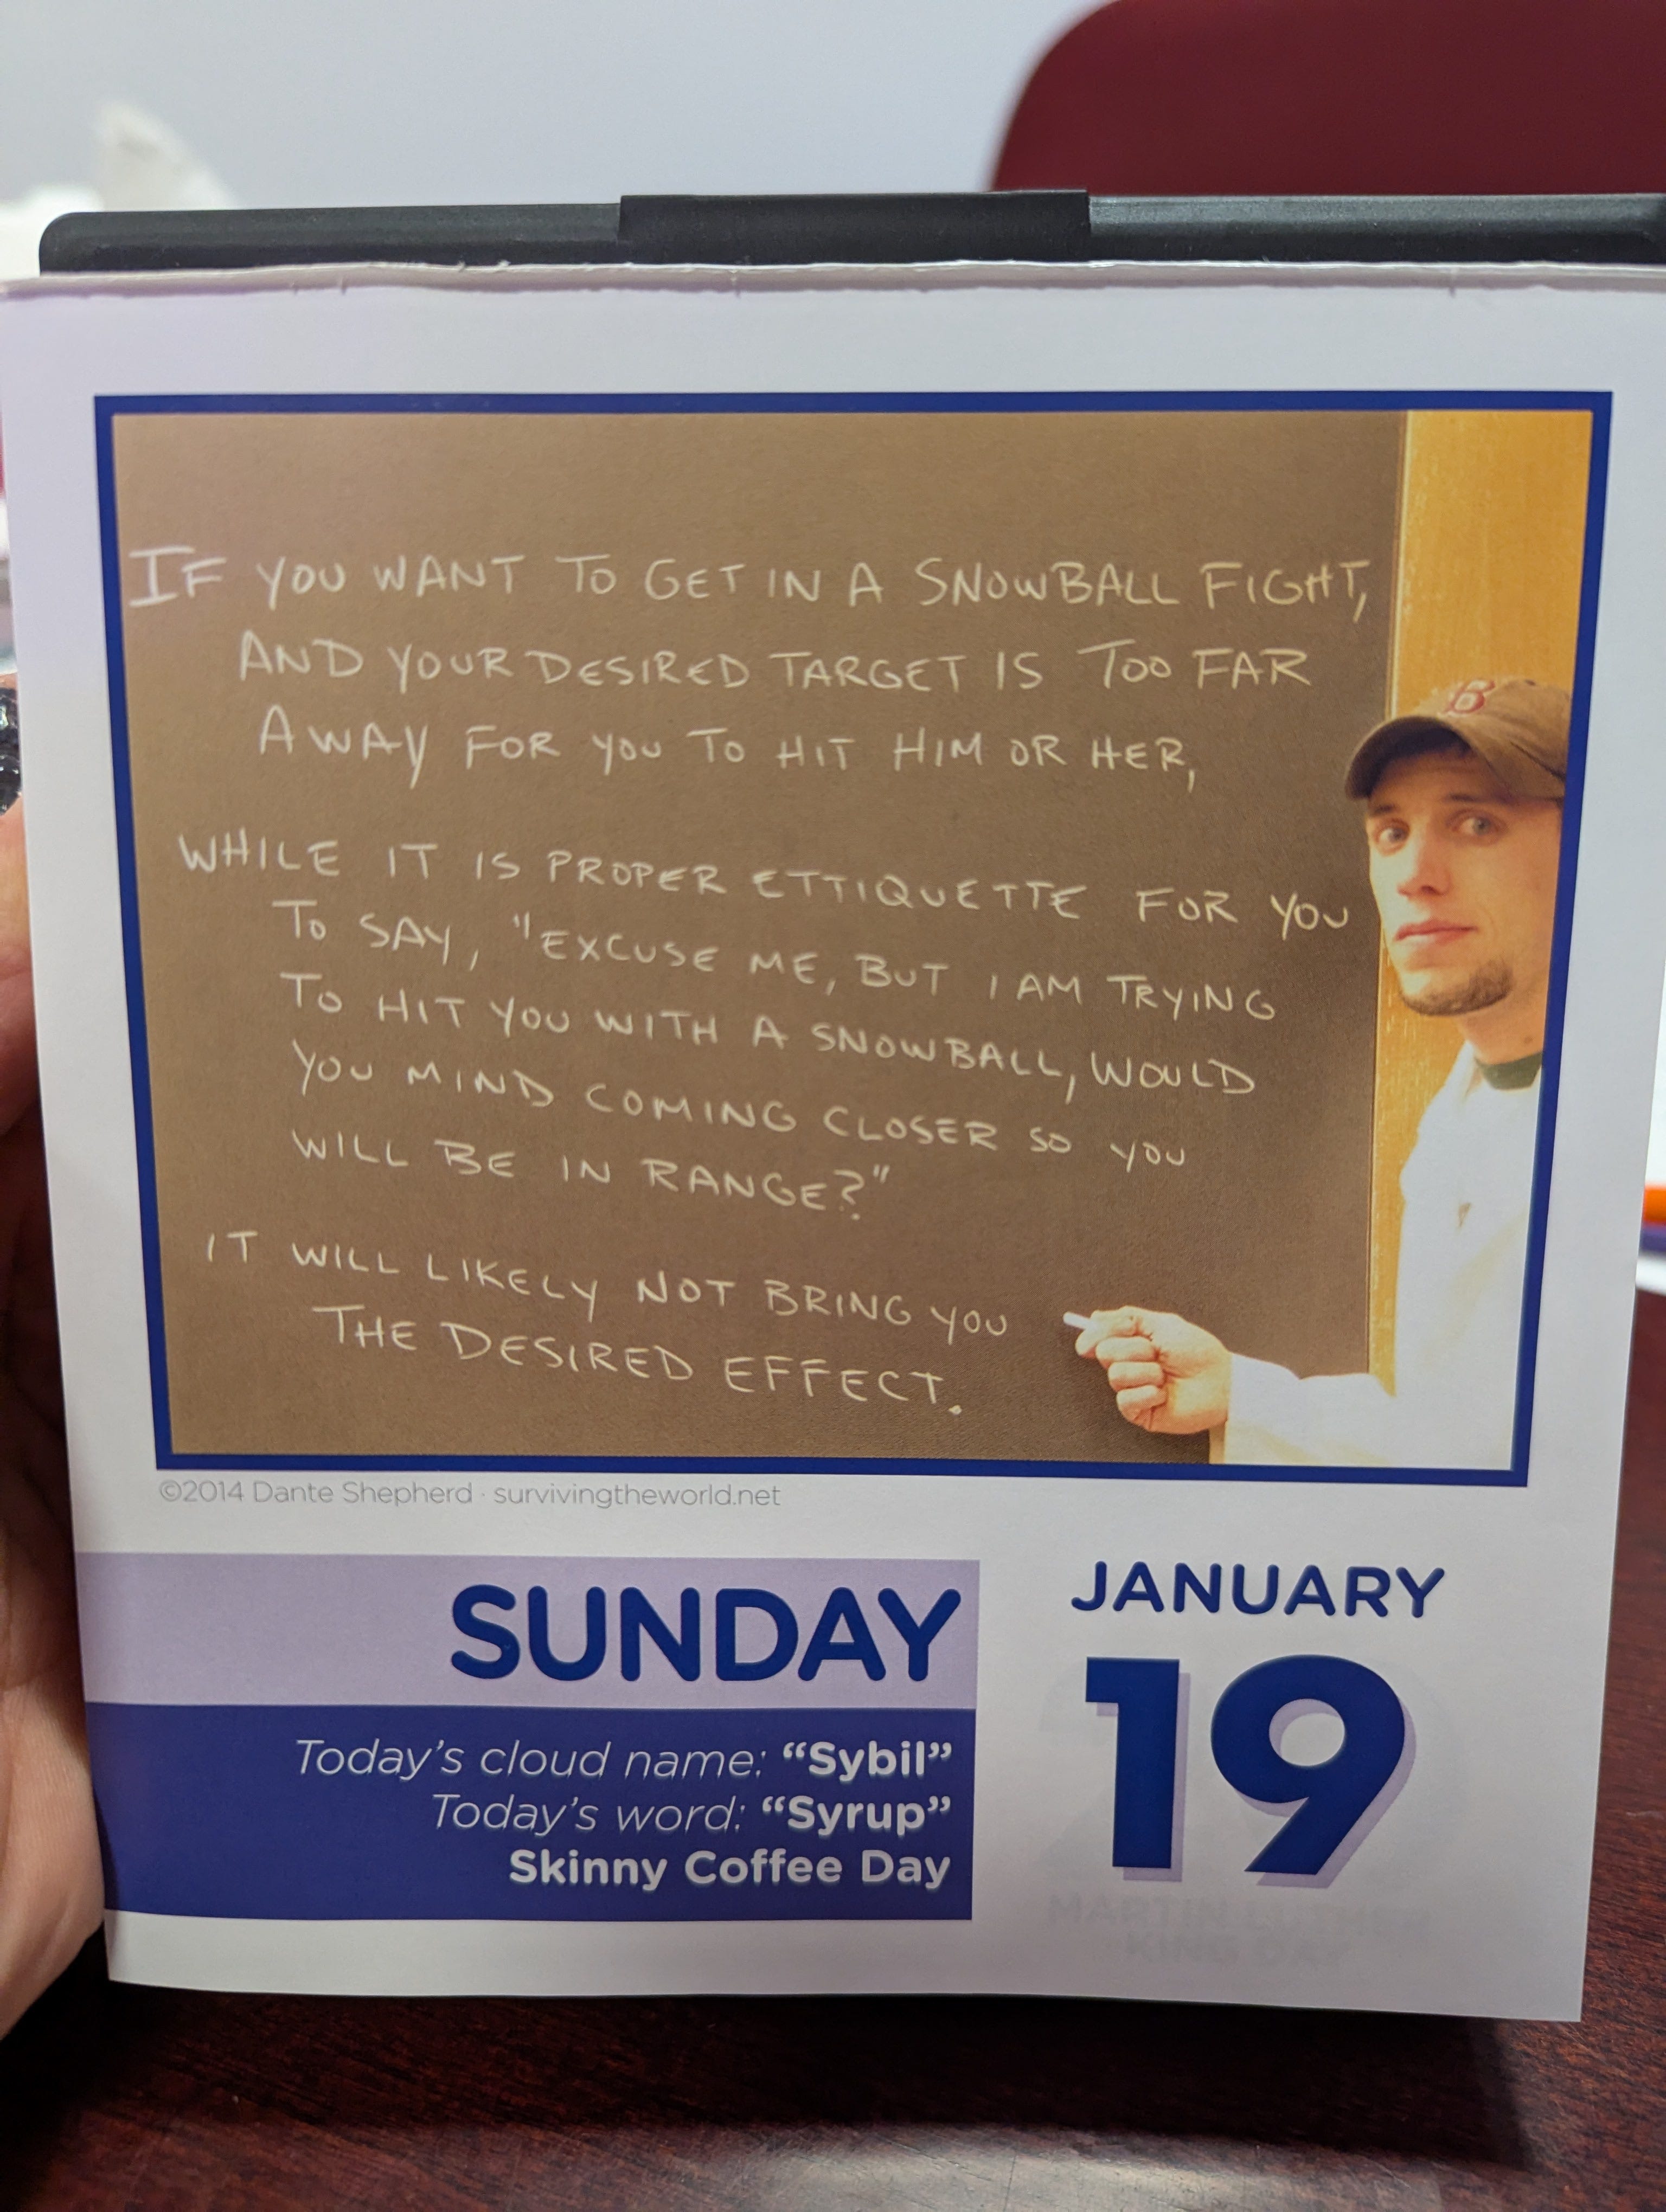 IF YOU WANT TO GET IN A SNOWBALL FIGHT,
AND YOUR DESIRED TARGET IS TOO FAR
AWAY FOR YOU TO HIT HIM OR HER,
WHILE IT IS PROPER ETTIQUETTE FOR YOU
TO SAY, "EXCUSE ME, BUT I AM TRYING
TO HIT YOU WITH A SNOWBALL, WOULD
YOU MIND COMING CLOSER SO YOU
WILL BE IN RANGE?"
IT WILL LIKELY NOT BRING YOU
THE DESIRED EFFECT.
B
©2014 Dante Shepherd · survivingtheworld.net
SUNDAY
JANUARY
19
Today's cloud name: “Sybil”
Today's word: “Syrup”
Skinny Coffee Day
MARTIN LUTHER
KING DAY